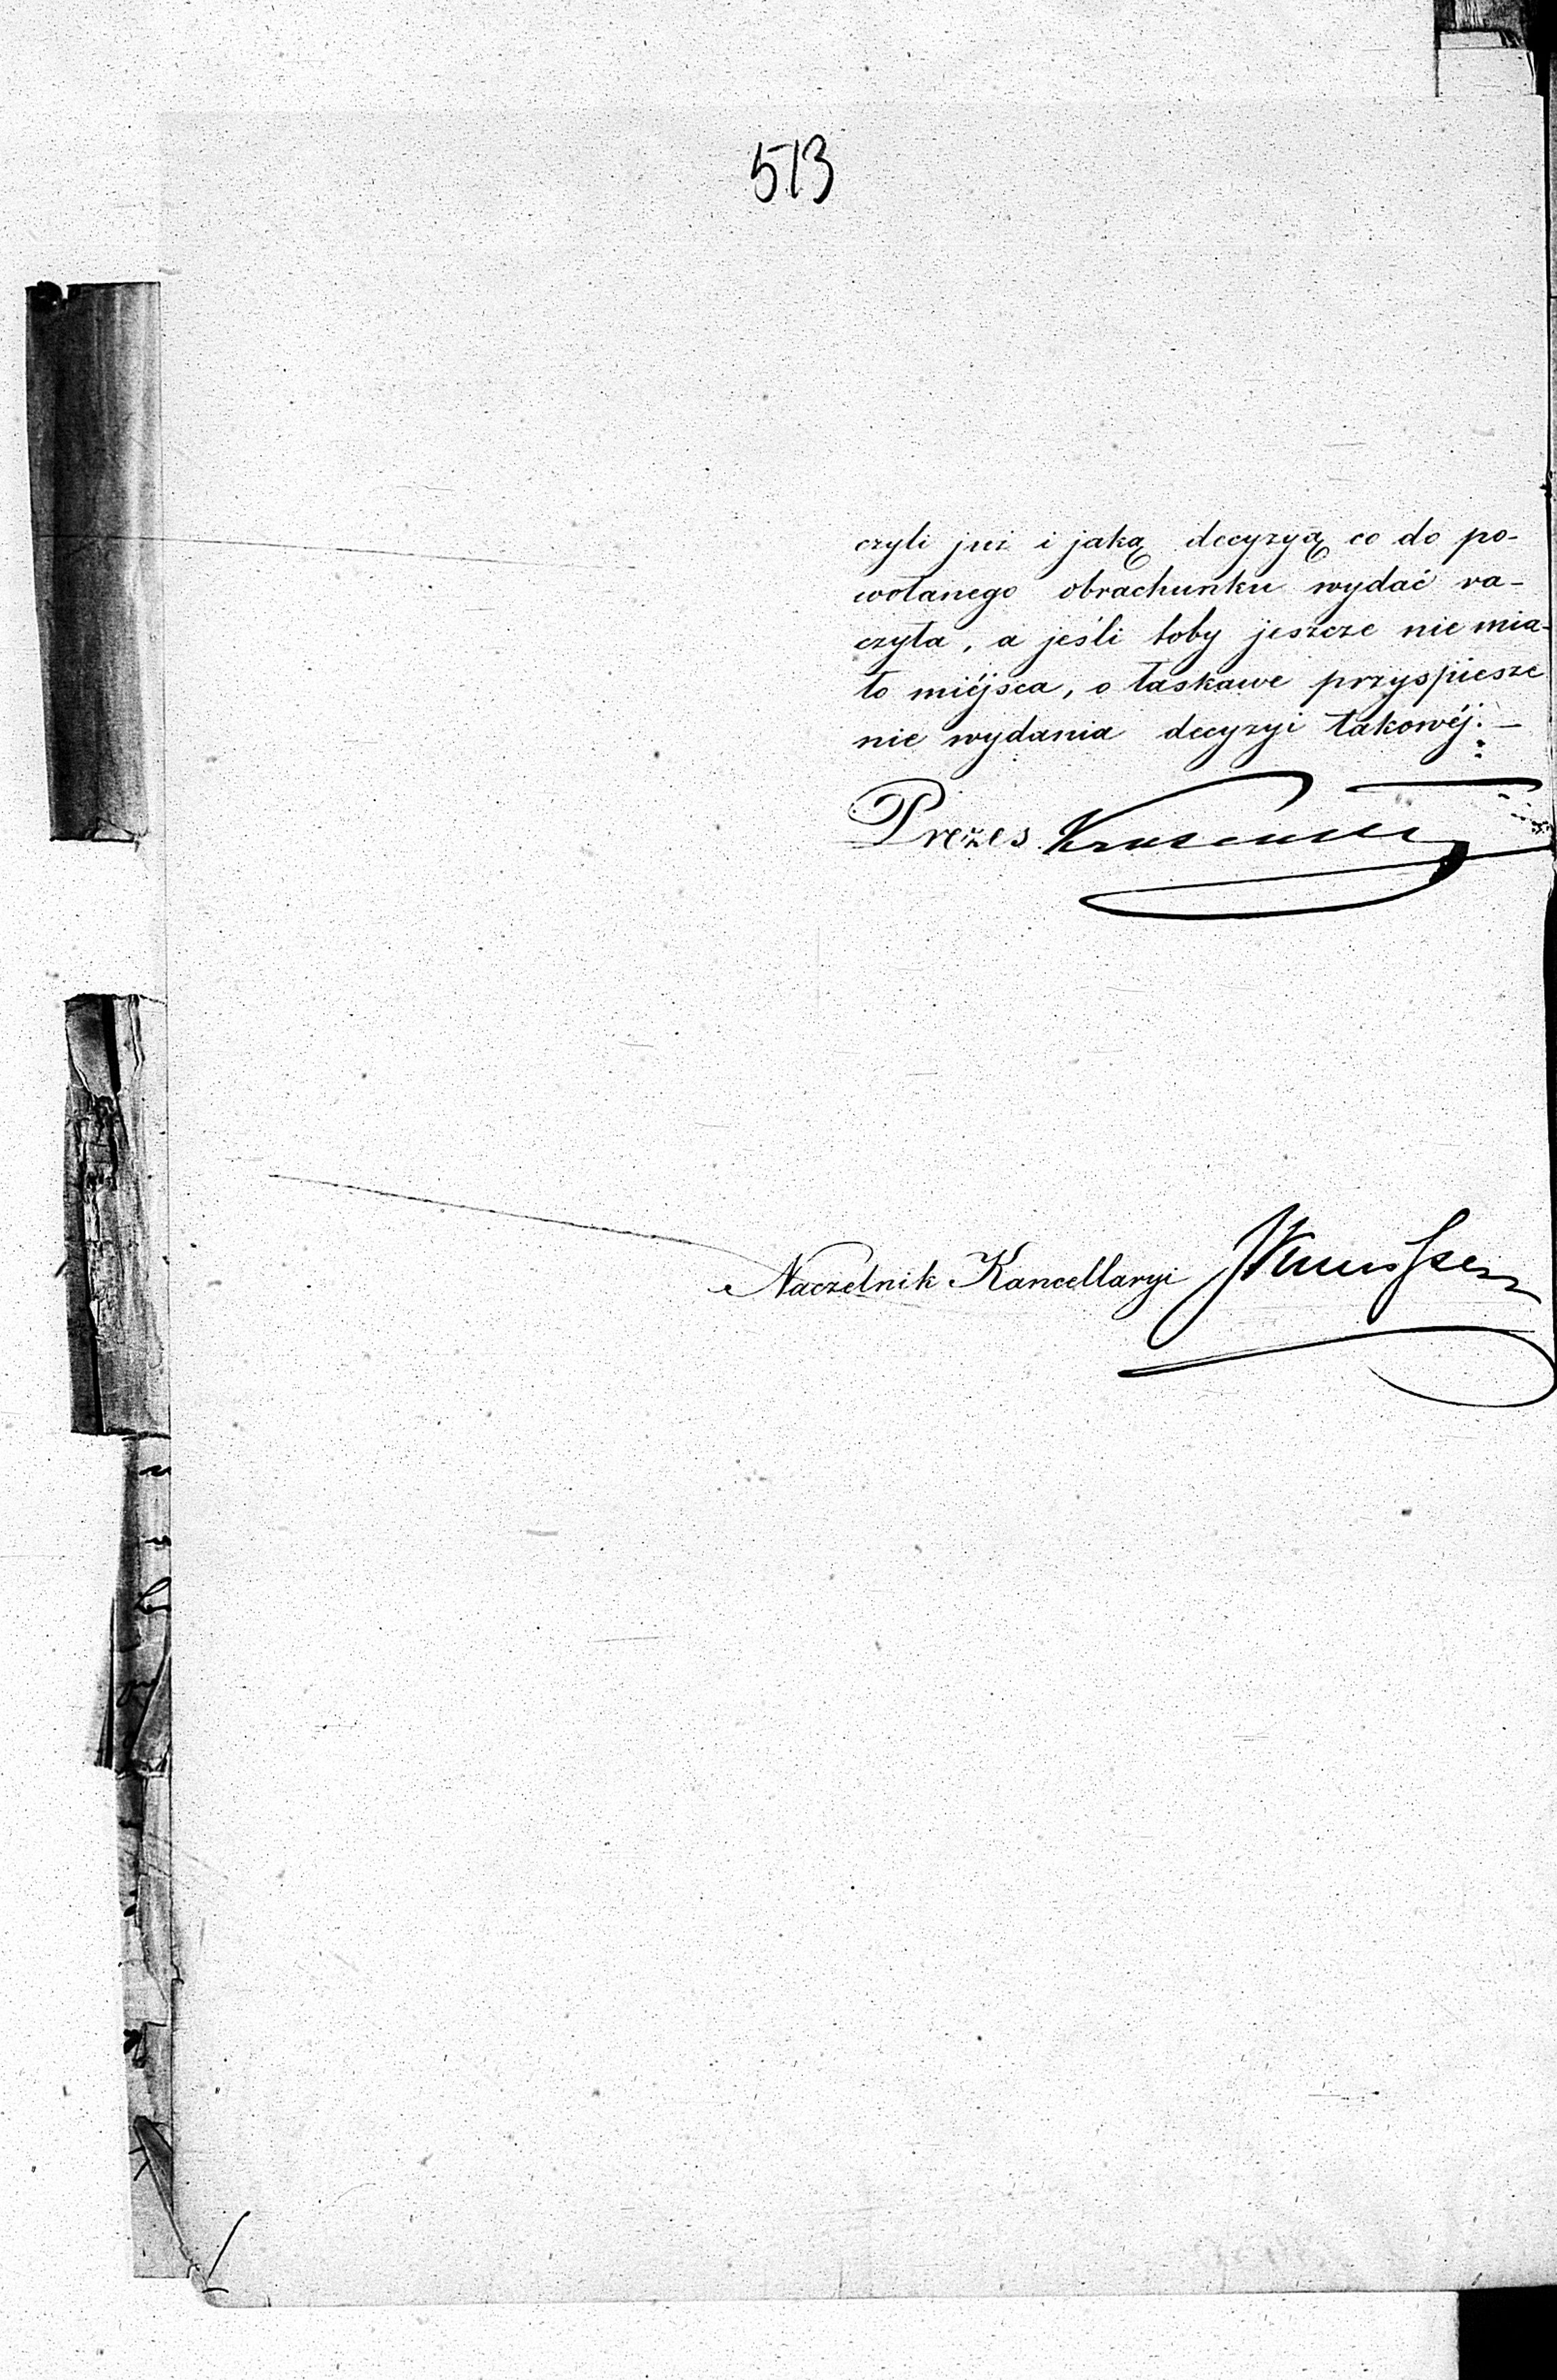 513
czyli już i jaką decyzyą co do po-
wołanego obrachunku wydać ra-
czyła, a jeśli toby jeszcze nie mia-
ło miéjsca, o łaskawe przyspiesze
nie wydania decyzyi takowéj. —
Prezes
Naczelnik Kancellaryi